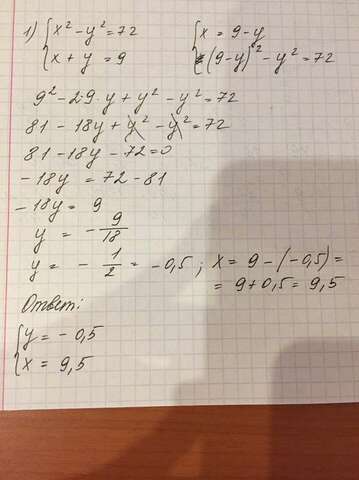 1) { x² - y² = 72
x + y = 9
{ x = 9 - y
(9 - y)² - y² = 72
9² - 2·9·y + y² - y² = 72
81 - 18y + y² - y² = 72
81 - 18y - 72 = 0
- 18y = 72 - 81
- 18y = 9
y = - 9/18
y = - 1/2 = - 0,5 ; x = 9 - (-0,5) =
= 9 + 0,5 = 9,5
Ответ:
{ y = - 0,5
x = 9,5